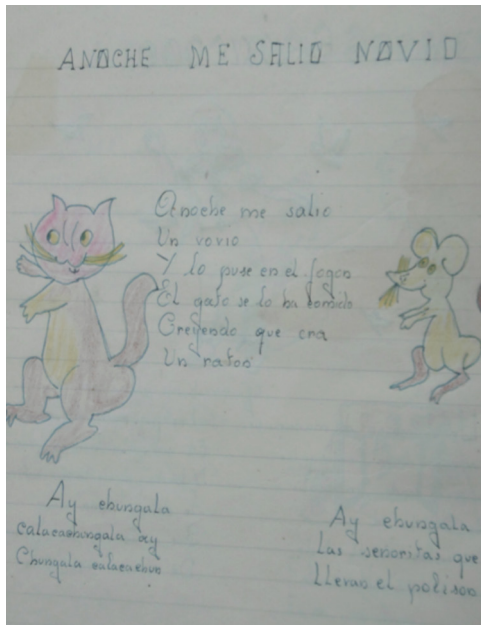 ANOCHE ME SALIO NOVIO
Anoche me salio
Un vovio
Y lo puse en el fogon
El gato se lo ha comido
Creyendo que era
Un raton
Ay chungala
calacachungala ay
Chungala calacachun
Ay chungala
Las senoritas que
Llevan el polison